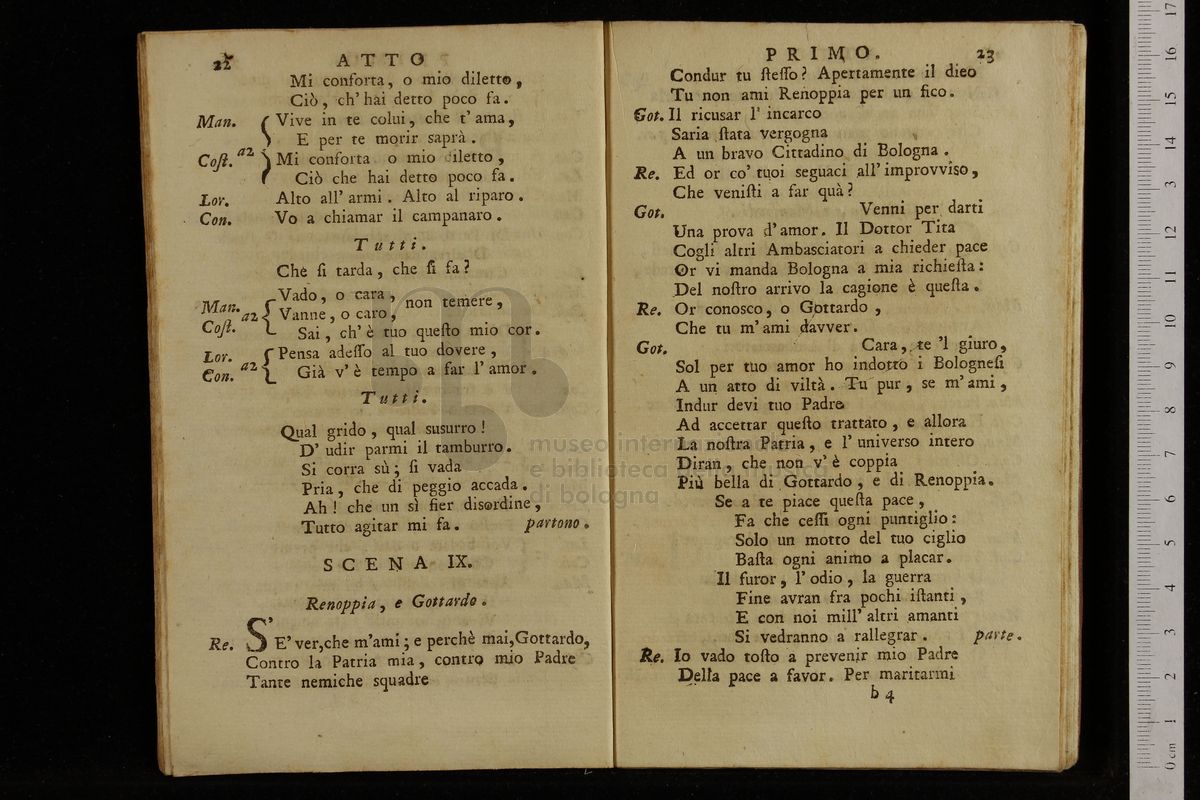 22 ATTO
Mi conforta, o mio diletto,
Ciò, ch' hai detto poco fa.
Man. Vive in te colui, che t' ama,
E per te morir saprà.
Coſt. a2 Mi conforta o mio diletto,
Ciò che hai detto poco fa.
Lor. Alto all' armi. Alto al riparo.
Con. Vo a chiamar il campanaro.
Tutti.
Che ſi tarda, che ſi fa?
Man. Vado, o cara,
Coſt. a2 Vanne, o caro, non temere,
Sai, ch' è tuo queſto mio cor.
Lor. Penſa adeſſo al tuo dovere,
Con. a2 Già v' è tempo a far l' amor.
Tutti.
Qual grido, qual susurro!
D' udir parmi il tamburro.
Si corra sù; ſi vada
Pria, che di peggio accada.
Ah! che un sì fier disordine,
Tutto agitar mi fa. partono.
SCENA IX.
Renoppia, e Gottardo.
Re. S' E' ver, che m'ami; e perchè mai, Gottardo,
Contro la Patria mia, contro mio Padre
Tante nemiche squadre
PRIMO. 23
Condur tu ſteſſo? Apertamente il dico
Tu non ami Renoppia per un fico.
Got. Il ricusar l' incarco
Saria ſtata vergogna
A un bravo Cittadino di Bologna.
Re. Ed or co' tuoi seguaci all' improvviso,
Che veniſti a far quà?
Got. Venni per darti
Una prova d' amor. Il Dottor Tita
Cogli altri Ambasciatori a chieder pace
Or vi manda Bologna a mia richieſta:
Del noſtro arrivo la cagione è queſta.
Re. Or conosco, o Gottardo,
Che tu m' ami davver.
Got. Cara, te 'l giuro,
Sol per tuo amor ho indotto i Bologneſi
A un atto di viltà. Tu pur, se m' ami,
Indur devi tuo Padre
Ad accettar queſto trattato, e allora
La noſtra Patria, e l' universo intero
Diran, che non v' è coppia
Più bella di Gottardo, e di Renoppia.
Se a te piace queſta pace,
Fa che ceſſi ogni puntiglio:
Solo un motto del tuo ciglio
Baſta ogni animo a placar.
Il furor, l' odio, la guerra
Fine avran fra pochi iſtanti,
E con noi mill' altri amanti
Si vedranno a rallegrar. parte.
Re. Io vado toſto a prevenir mio Padre
Della pace a favor. Per maritarmi
b 4
museo internazionale
e biblioteca della musica
di bologna
0 cm 1 2 3 4 5 6 7 8 9 10 11 12 13 14 15 16 17